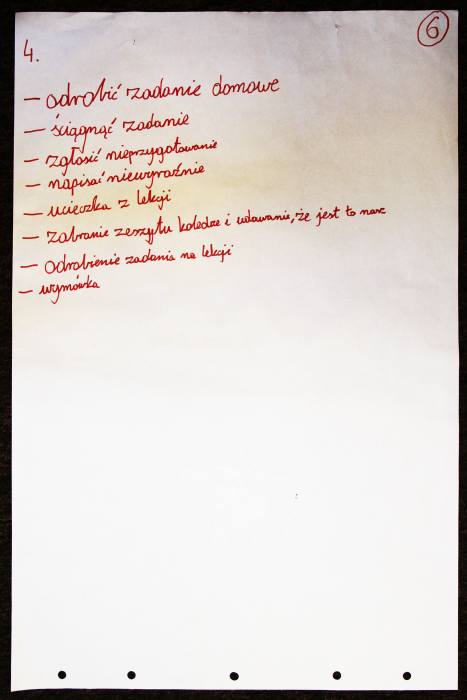 6
4.
- odrobić zadanie domowe
- ściągnąć zadanie
- zgłosić nieprzygotowanie
- napisać niewyraźnie
- ucieczka z lekcji
- zabranie zeszytu koledze i udawanie, że jest to nasz
- odrobienie zadania na lekcji
- wymówka